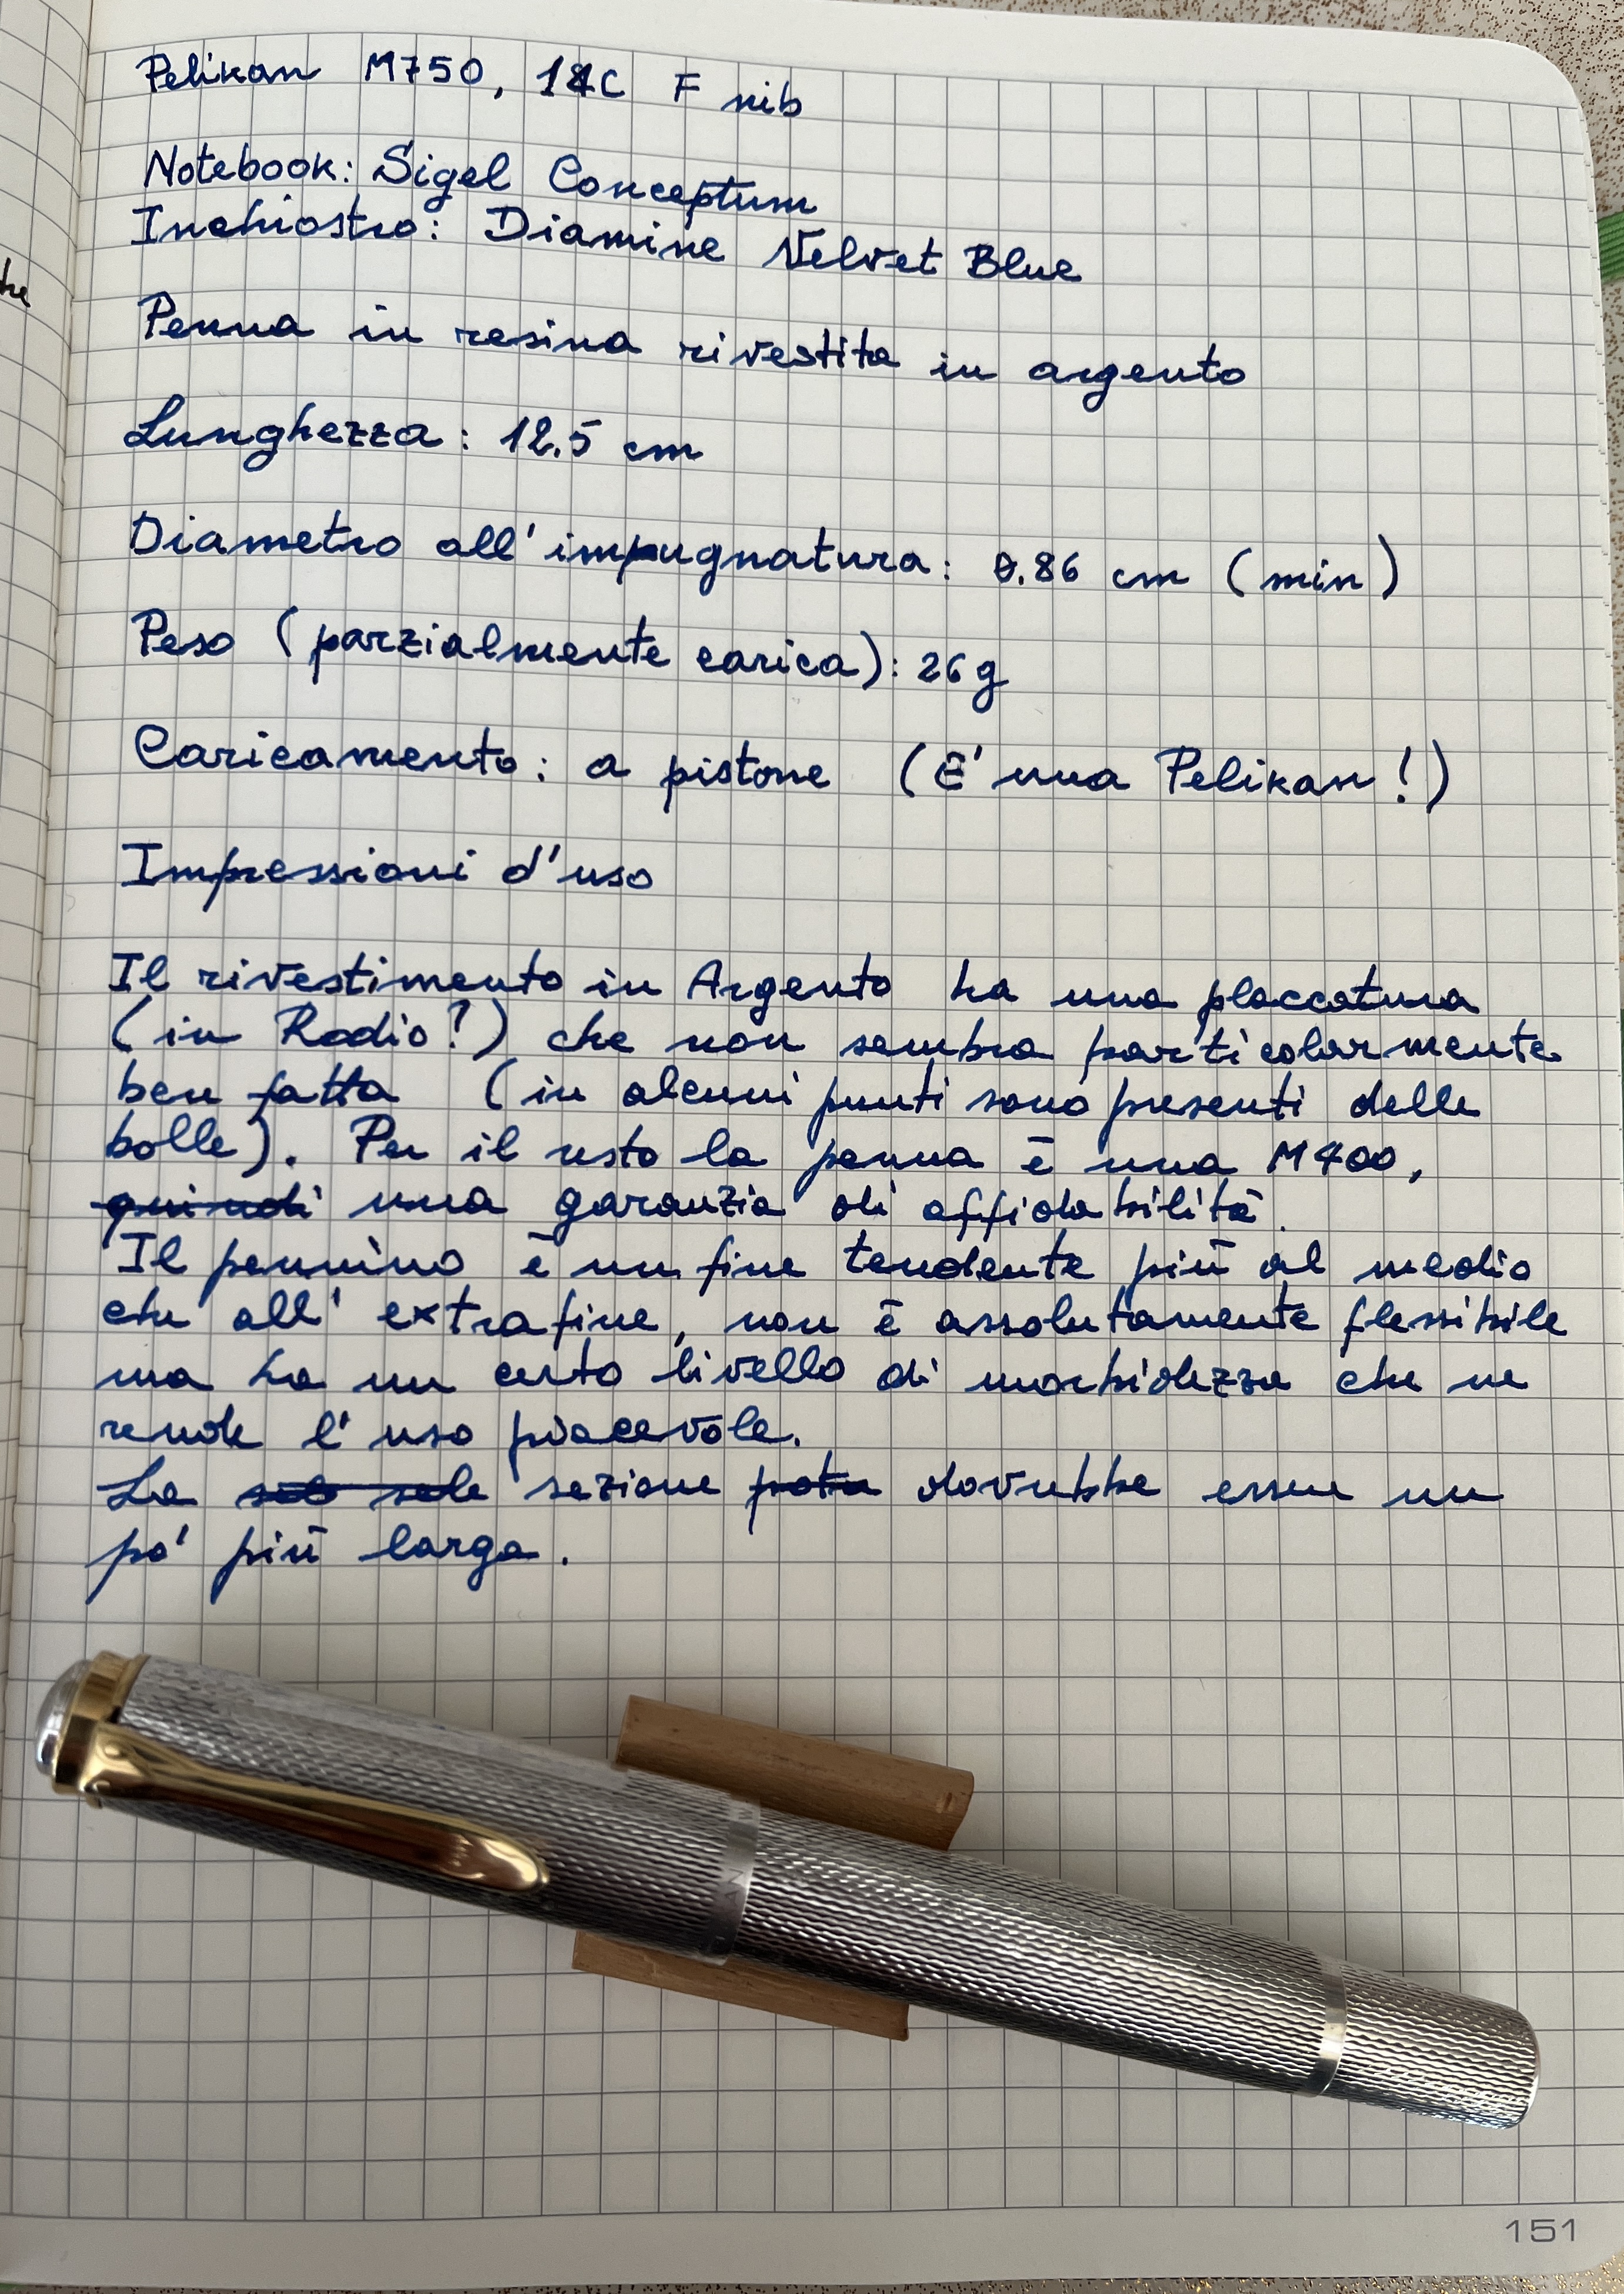 Pelikan M750, 18C F nib
Notebook: Sigel Conceptum
Inchiostro: Diamine Velvet Blue
Penna in resina rivestita in argento
Lunghezza: 12.5 cm
Diametro all'impugnatura: 0.86 cm (min)
Peso (parzialmente carica): 26g
Caricamento: a pistone (E' una Pelikan!)
Impressioni d'uso
Il rivestimento in Argento ha una placcatura
(in Rodio?) che non sembra particolarmente
ben fatta (in alcuni punti sono presenti delle
bolle). Per il resto la penna è una M400,
quindi una garanzia di affidabilità.
Il pennino è un fine tendente più al medio
che all'extrafine, non è assolutamente flessibile
ma ha un certo livello di morbidezza che ne
rende l'uso piacevole.
La sezione dovrebbe essere un
po' più larga.
151